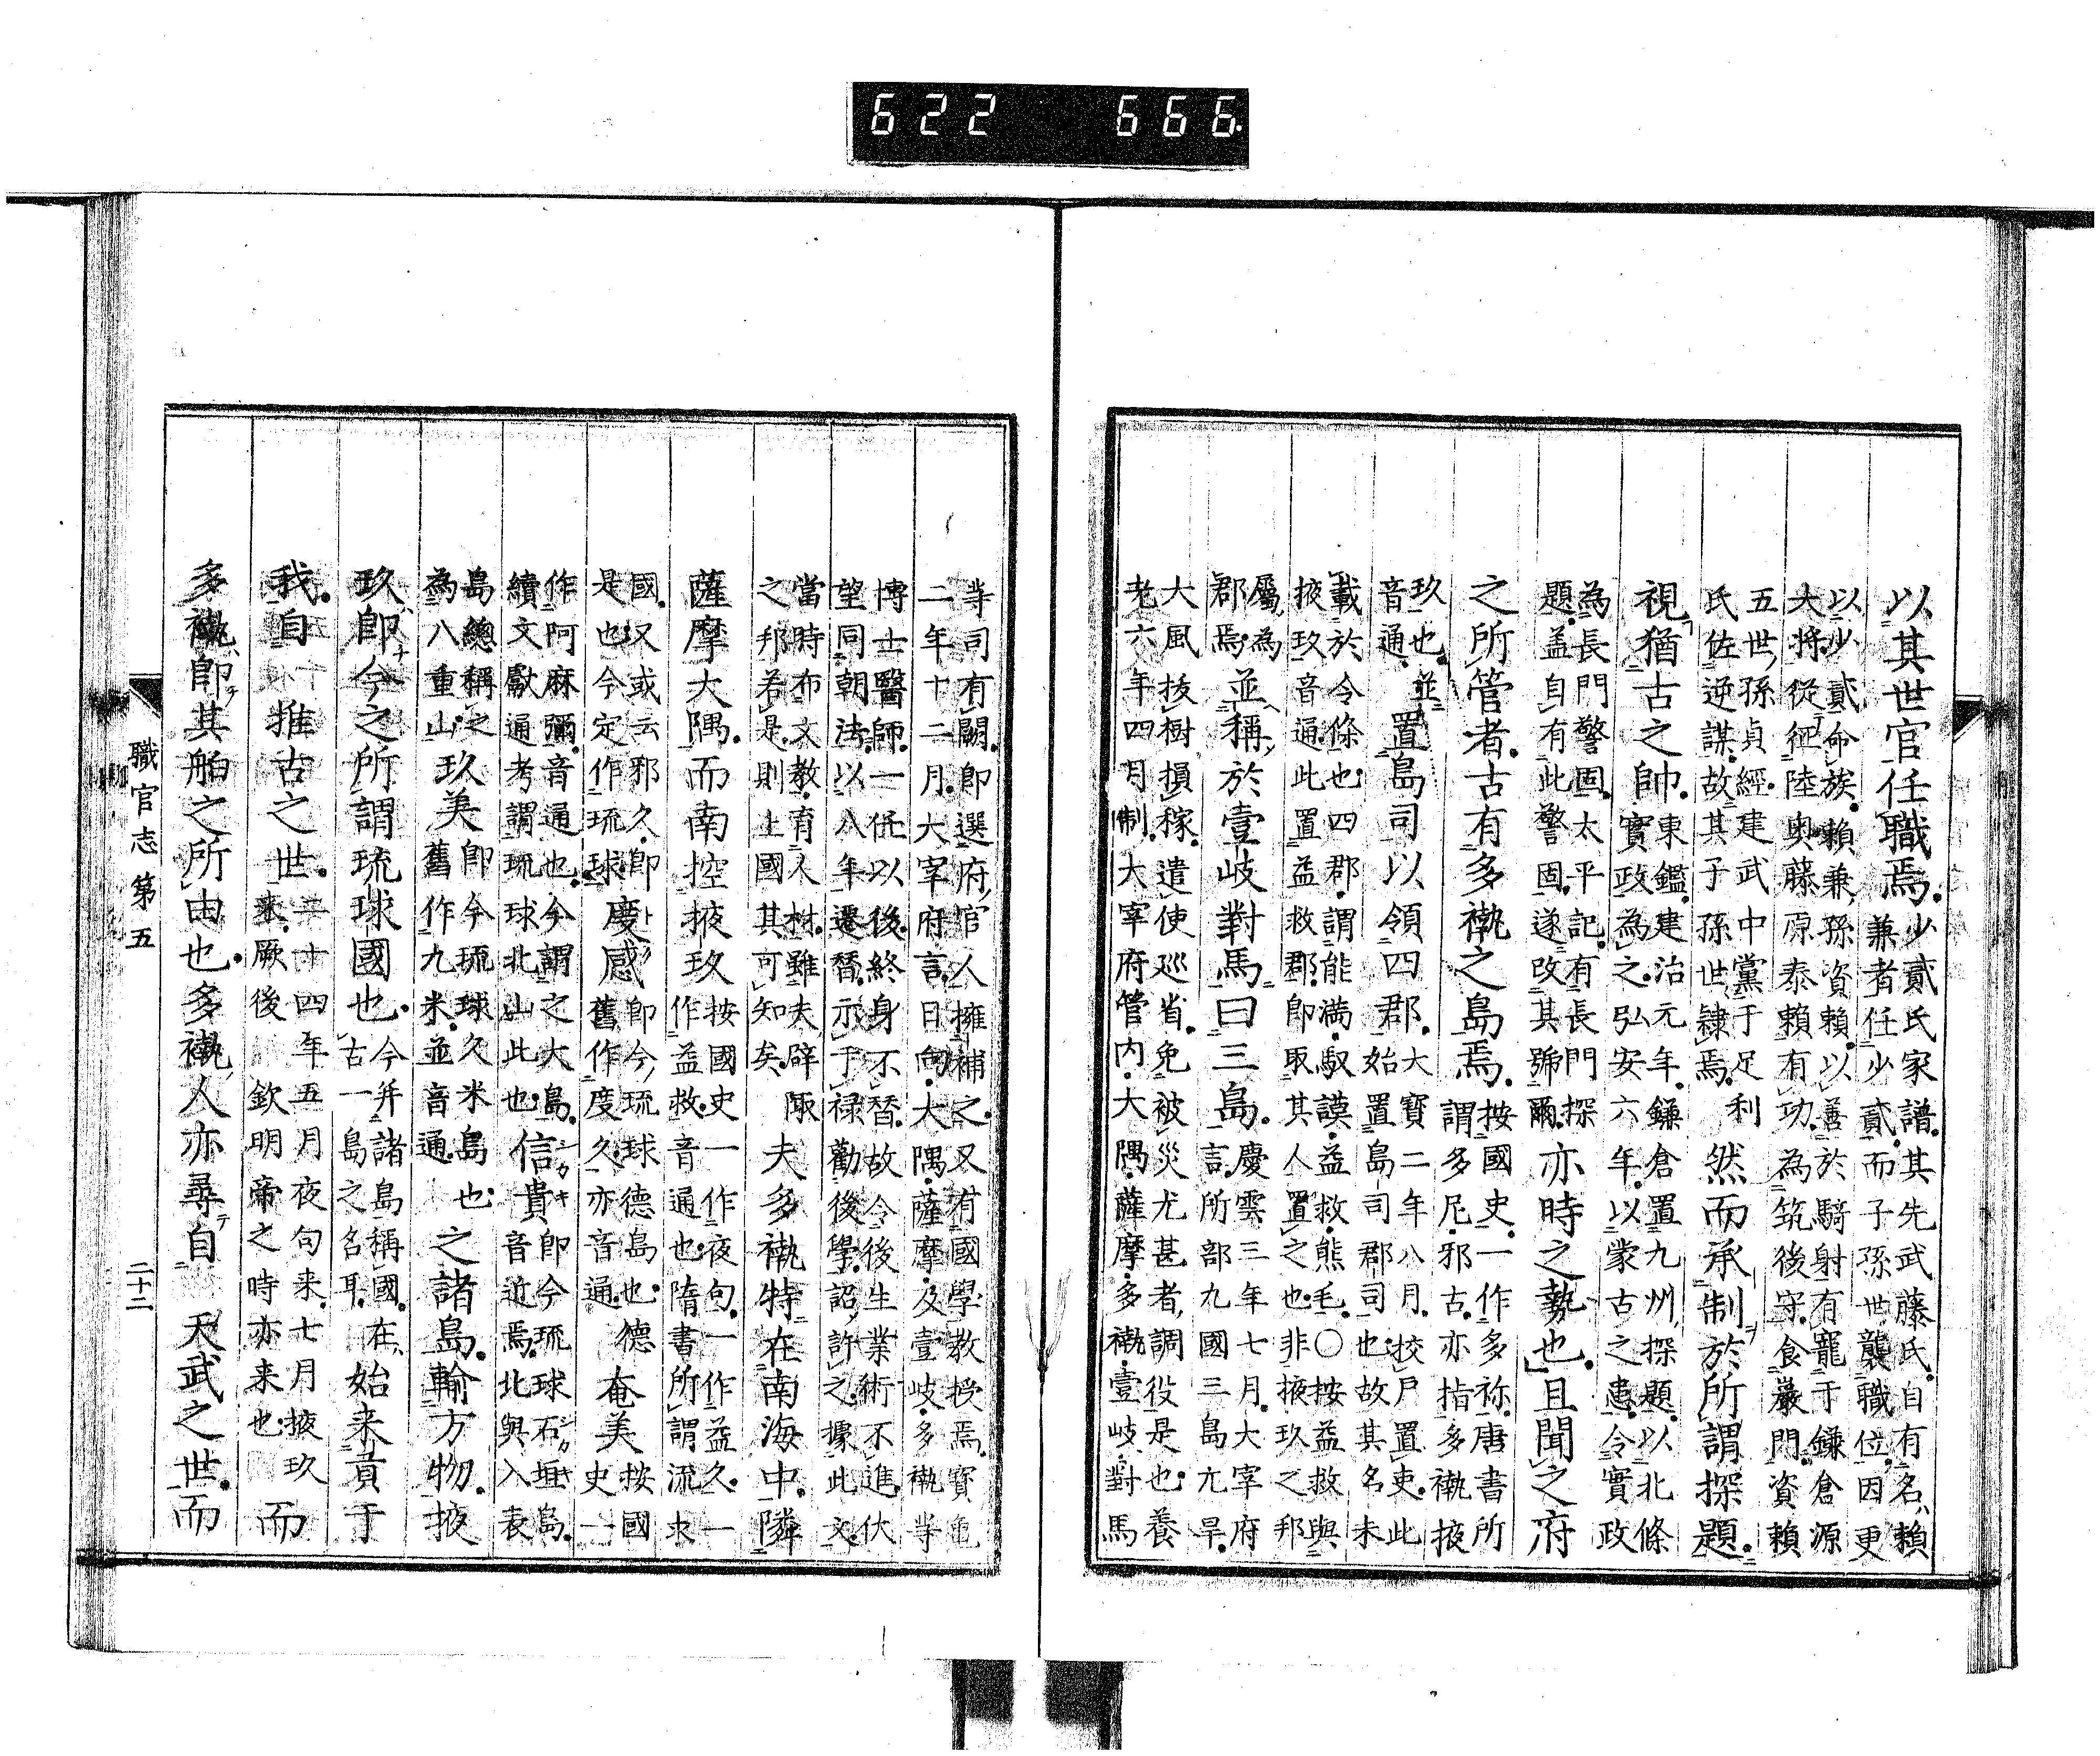 622 666
以其世官任職焉。少貳氏家譜。其先武藤氏。自有名、賴
兼者任少貳。而子孫世襲職位。因更
以少貳命族。賴兼、孫資賴。以善於騎射有寵于鎌倉源
大將。從征陸奥藤原泰賴有功。為筑後守。食巖門。資賴
五世、孫貞經。建武中黨于足利
氏佐逆謀。故其子孫世隷焉。然而承制於所謂探題。
視猶古之帥。東鑑。建治元年。鎌倉置九州、探題。以北條
實政為之。弘安六年。以蒙古之患。令實政
為長門警固。太平記。有長門探
題。盖自有此警固。遂改其號爾。亦時之勢也。且聞之府
之所管者。古有多褹之島焉。按國史。一作多祢。唐書所
謂多尼。邪古。亦指多褹掖
玖也。
音通。並置島司以領四郡。大寶二年八月。挍戸置吏。此
始置島司郡司也。故其名未
載於令條也。四郡。謂能満。馭謨。益救。熊毛。〇按益救與
掖玖音通。此置益救郡。即取其人置之也。非掖玖之邦
屬、為
郡焉。並稱、於壹岐對馬。曰三島。慶雲三年七月。大宰府
言。所部九國三島亢旱。
大風抜樹損稼。遣使巡省。免被災尤甚者、調役是也。養
老六年四月制。大宰府管内。大隅。薩摩。多褹。壹岐。對馬
等司有闕。即選府、官人擁補之。又有國學教授焉。寶龜
二年十二月。大宰府言。日向。大隅。薩摩。及壹岐。多褹等
博士醫師。一任以後。終身不替。故令後生業術不進。伏
望同朝法。以八年遷替。示于禄勸後學。詔、許之。據此文。
當時布文教。育人材。雖夫辟陬
之邦若是。則上國其可知矣。夫多褹特在南海中。隣
薩摩大隅。而南控掖玖按國史一作夜句。一作益久。一
作益救。音通也。隋書所謂流求
國。又或云邪久。即
是也。今定作琉球。慶感即今、琉球德島也。德
舊作度久。亦音通。奄美按國
史一
作阿麻彌。音通也。今謂之大島。
續文獻通考謂琉球北山、此也。信貴即今琉球石垣島。
音近焉。北與入表
島總稱之
為八重山。玖美即今琉球久米島也。
舊作九米。並音通。之諸島。輸方物。掖
玖、即今之所謂琉球國也。今并諸島稱國。在、
古一島之名耳。始来貢于
我。自推古之世。二十四年五月夜句来。七月掖玖
来。厥後欽明帝之時亦来也。而
多褹、即其舶之所由也。多褹、人亦尋自天武之世。而
職官志第五
二十二